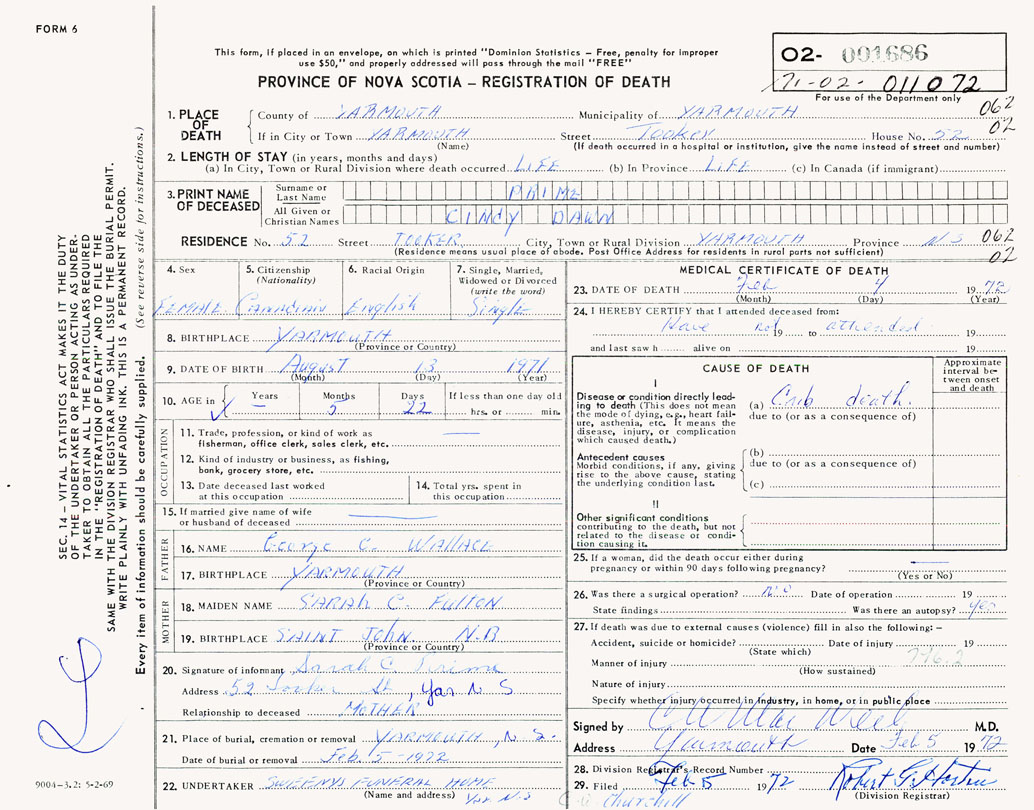 FORM 6
This form, if placed in an envelope, on which is printed "Dominion Statistics – Free, penalty for improper
use $50," and properly addressed will pass through the mail "FREE"
PROVINCE OF NOVA SCOTIA – REGISTRATION OF DEATH
O2- 001686
71-02- 011072
For use of the Department only
062
02
1. PLACE OF DEATH
County of YARMOUTH Municipality of YARMOUTH
If in City or Town YARMOUTH Street Tooker House No. 52
(Name) (If death occurred in a hospital or institution, give the name instead of street and number)
2. LENGTH OF STAY (in years, months and days)
(a) In City, Town or Rural Division where death occurred LIFE (b) In Province LIFE (c) In Canada (if immigrant)
3. PRINT NAME OF DECEASED
Surname or Last Name PRIME
All Given or Christian Names CINDY DAWN
RESIDENCE No. 52 Street TOOKER City, Town or Rural Division YARMOUTH Province N S 062
(Residence means usual place of abode. Post Office Address for residents in rural parts not sufficient) 02
4. Sex
FEMALE
5. Citizenship
(Nationality)
Canadian
6. Racial Origin
English
7. Single, Married,
Widowed or Divorced
(write the word)
Single
8. BIRTHPLACE YARMOUTH
(Province or Country)
9. DATE OF BIRTH August 13 1971
(Month) (Day) (Year)
10. AGE in Years – Months 5 Days 22 If less than one day old
hrs. or min.
OCCUPATION
11. Trade, profession, or kind of work as
fisherman, office clerk, sales clerk, etc.
12. Kind of industry or business, as fishing,
bank, grocery store, etc.
13. Date deceased last worked
at this occupation
14. Total yrs. spent in
this occupation
15. If married give name of wife
or husband of deceased
FATHER
16. NAME George C. WALLACE
17. BIRTHPLACE YARMOUTH
(Province or Country)
MOTHER
18. MAIDEN NAME SARAH C. FULTON
19. BIRTHPLACE SAINT John N.B
(Province or Country)
20. Signature of informant Sarah C. Prime
Address 52 Tooker St, Yar N S
Relationship to deceased MOTHER
21. Place of burial, cremation or removal YARMOUTH, N.S.
Date of burial or removal Feb. 5-1972
22. UNDERTAKER SWEENYS FUNERAL HOME
(Name and address) Yar N.S
MEDICAL CERTIFICATE OF DEATH
23. DATE OF DEATH Feb 4 1972
(Month) (Day) (Year)
24. I HEREBY CERTIFY that I attended deceased from:
Have not 19 to attended 19
and last saw h alive on 19
CAUSE OF DEATH
Approximate
interval be-
tween onset
and death
I
Disease or condition directly lead-
ing to death (This does not mean
the mode of dying, e.g., heart fail-
ure, asthenia, etc. It means the
disease, injury, or complication
which caused death.)
(a) Crib death.
due to (or as a consequence of)
Antecedent causes
Morbid conditions, if any, giving
rise to the above cause, stating
the underlying condition last.
(b)
due to (or as a consequence of)
(c)
II
Other significant conditions
contributing to the death, but not
related to the disease or condi-
tion causing it.
25. If a woman, did the death occur either during
pregnancy or within 90 days following pregnancy?
(Yes or No)
26. Was there a surgical operation? no Date of operation 19
State findings Was there an autopsy? yes
27. If death was due to external causes (violence) fill in also the following: –
Accident, suicide or homicide? Date of injury 19
(State which) 796.2
Manner of injury
(How sustained)
Nature of injury
Specify whether injury occurred in industry, in home, or in public place
Signed by M.D.
Address Yarmouth Date Feb 5 1972
28. Division Registrar's Record Number
29. Filed Feb 5 1972
(Division Registrar)
Churchill
SEC. 14 – VITAL STATISTICS ACT MAKES IT THE DUTY
OF THE UNDERTAKER OR PERSON ACTING AS UNDER-
TAKER TO OBTAIN ALL THE PARTICULARS REQUIRED
IN THE "REGISTRATION OF DEATH" AND TO FILE THE
SAME WITH THE DIVISION REGISTRAR WHO SHALL ISSUE THE BURIAL PERMIT.
WRITE PLAINLY WITH UNFADING INK. THIS IS A PERMANENT RECORD.
Every item of information should be carefully supplied. (See reverse side for instructions.)
9004-3.2: 5-2-69